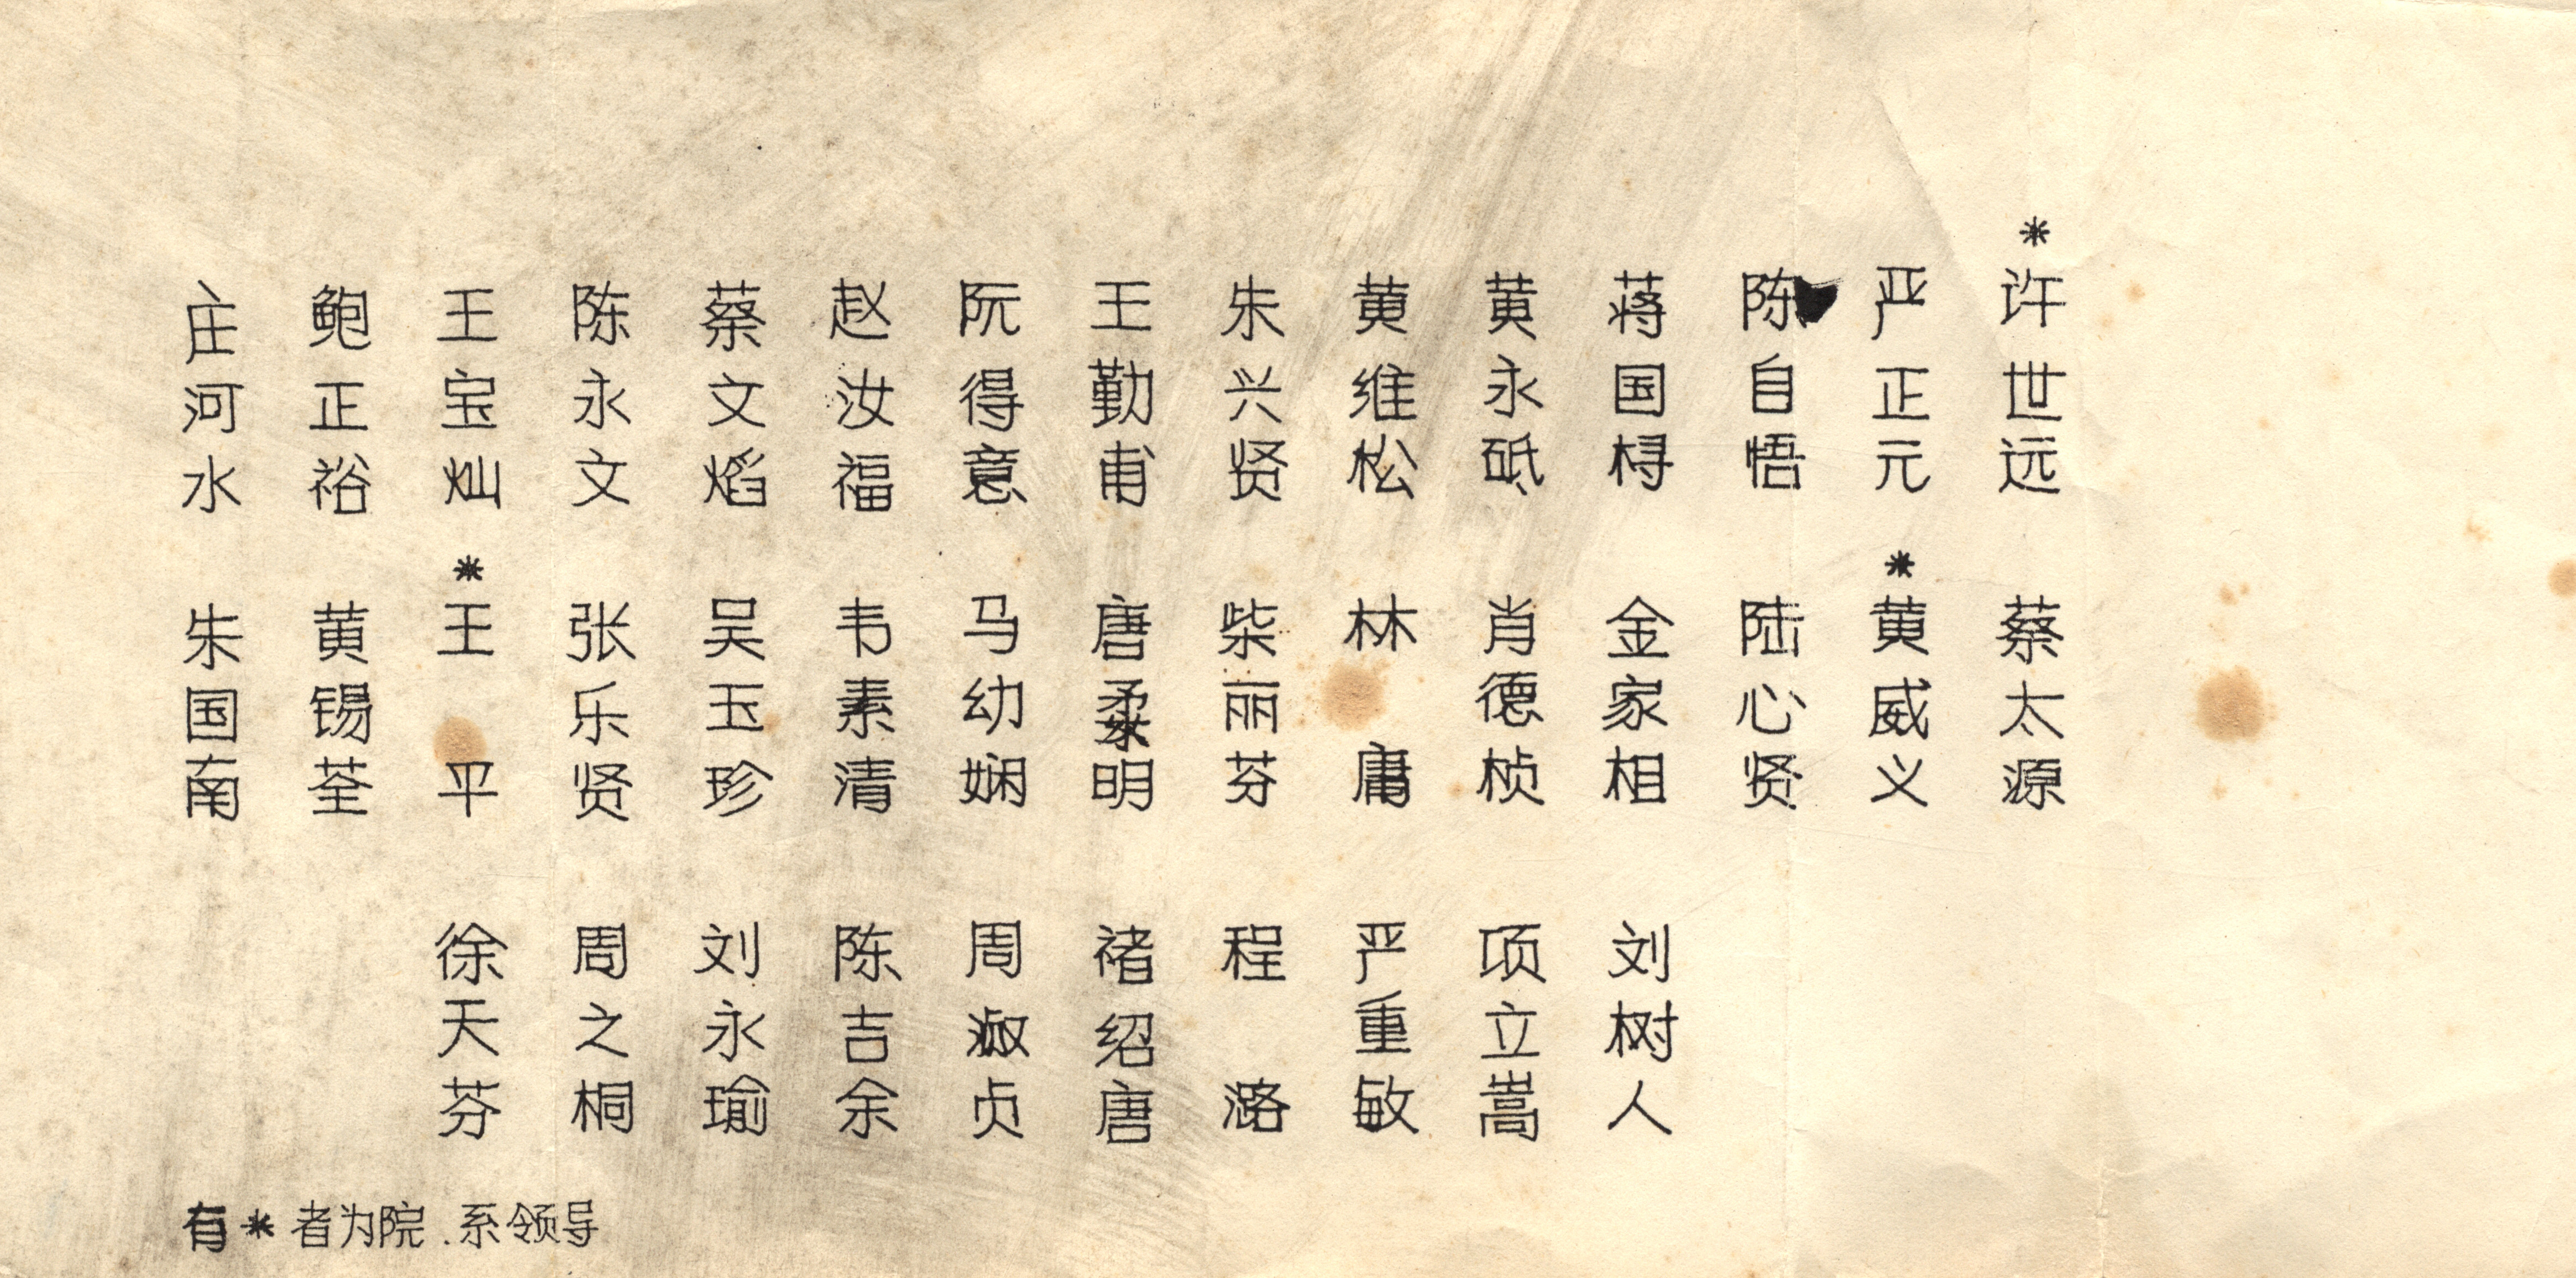 庄河水
鲍正裕
王宝灿
陈永文
蔡文焰
赵汝福
阮得意
王勤甫
朱兴贤
黄维松
黄永砥
蒋国桪
陈自悟
严正元
*许世远
朱国南
黄锡荃
*王平
张乐贤
吴玉珍
韦素清
马幼娴
唐柔明
柴丽芬
林庸
肖德桢
金家相
陆心贤
*黄威义
蔡太源
徐天芬
周之桐
刘永瑜
陈吉余
周淑贞
褚绍唐
程潞
严重敏
项立嵩
刘树人
有*者为院.系领导